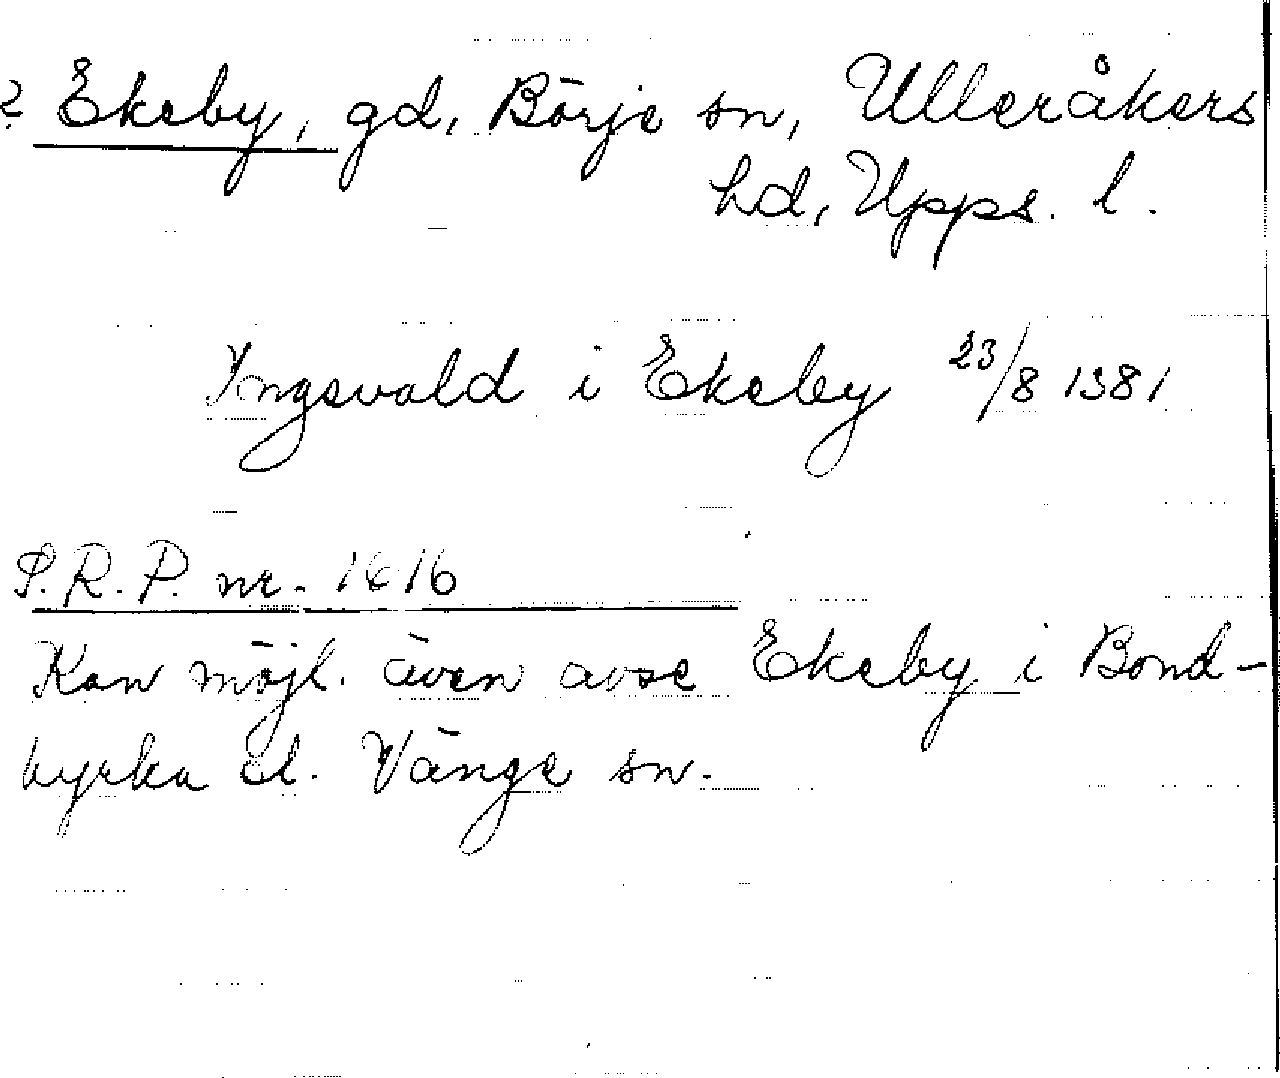 ? Ekeby, gd, Börje sn, Ulleråkers
hd, Upps. l.
Yngevald i Ekeby 23/8 1381
S.R.P. nr. 1616
Kan möjl. även avse Ekeby i Bond-
kyrka el. Vänge sn.